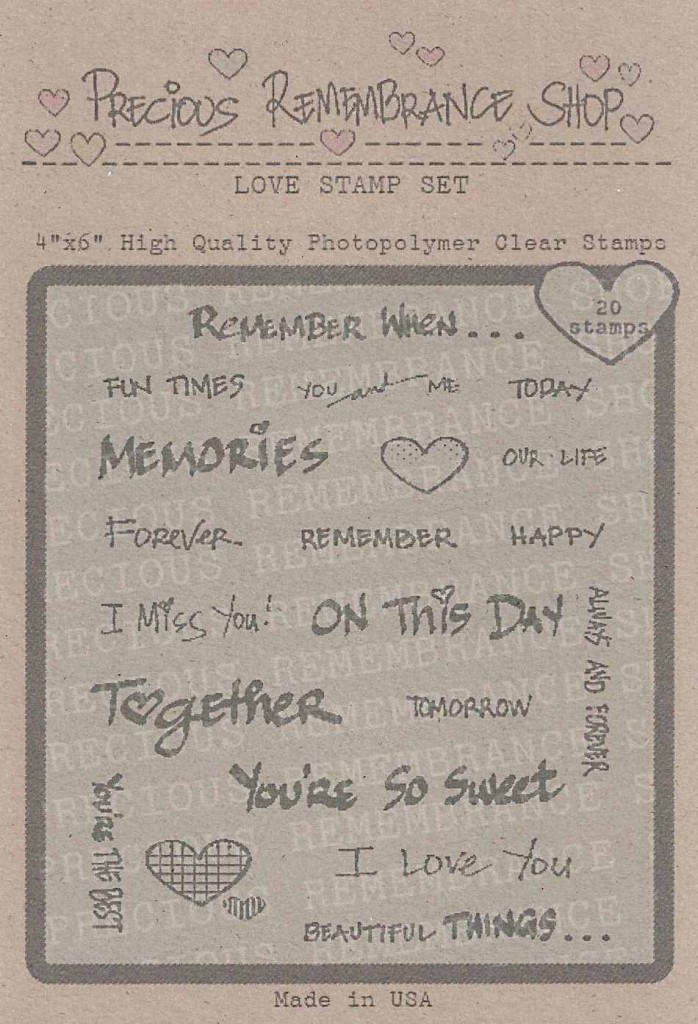 Precious Remembrance Shop
LOVE STAMP SET
4"x6" High Quality Photopolymer Clear Stamps
20
stamps
Remember When...
FUN TIMES YOU and ME TODAY
MEMORIES OUR LIFE
Forever REMEMBER HAPPY
I Miss You! ON This DAY
ALWAYS AND FOREVER
Together TOMORROW
You're So Sweet
YOU'RE THE BEST
I Love You
BEAUTIFUL THINGS...
Made in USA